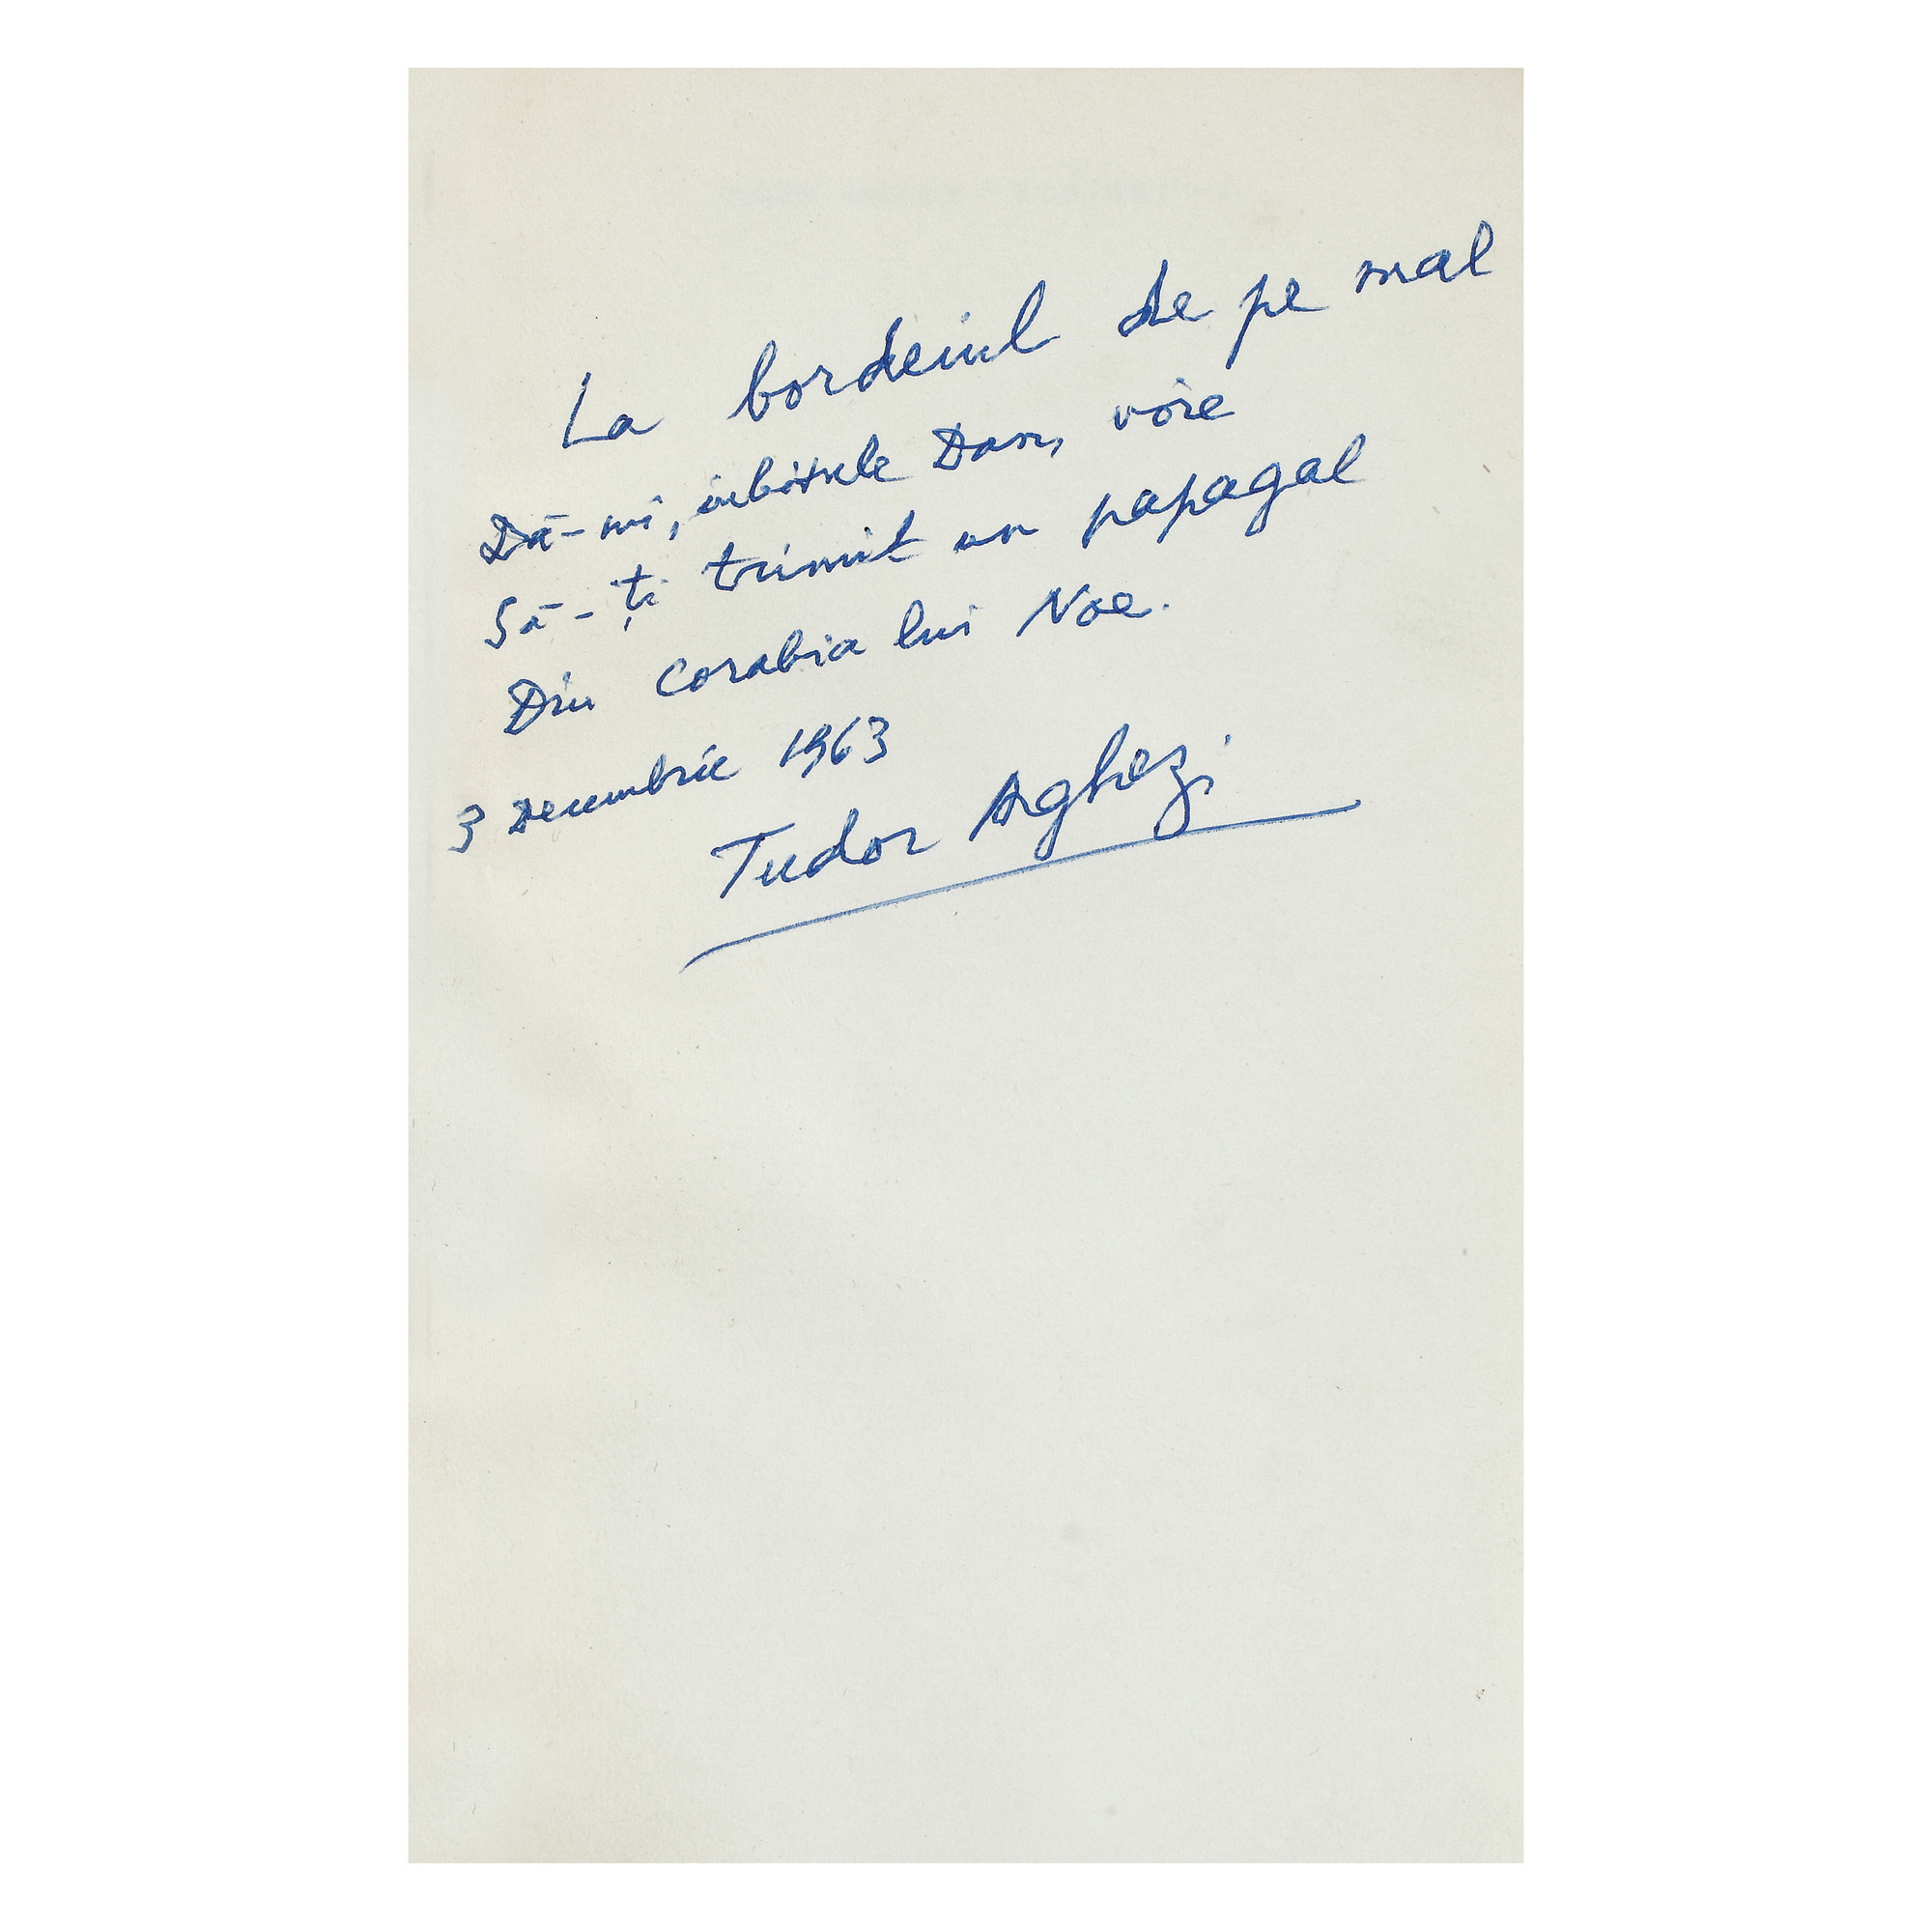 La bordeiul de pe mal
Dă-mi, iubitule Dan, voie
Să-ți trimit un papagal
Din Corabia lui Noe.
3 Decembrie 1963
Tudor Arghezi